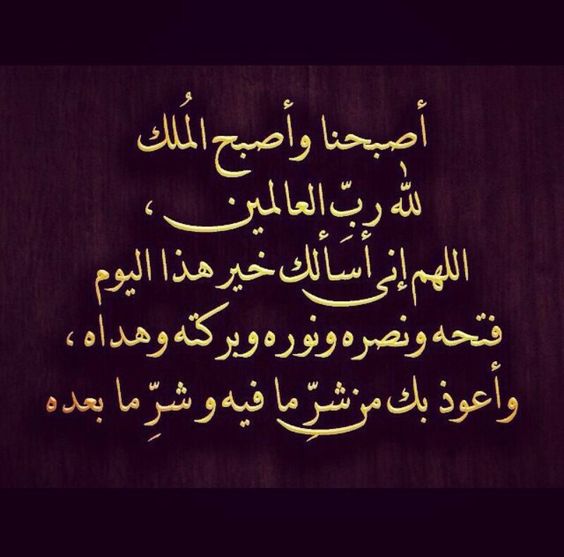 أصبحنا وأصبح المُلك
لله ربِّ العالمين ،
اللهم إنى أسألك خير هذا اليوم
فتحه ونصره ونوره وبركته وهداه ،
وأعوذ بك من شرِّ ما فيه و شرِّ ما بعده